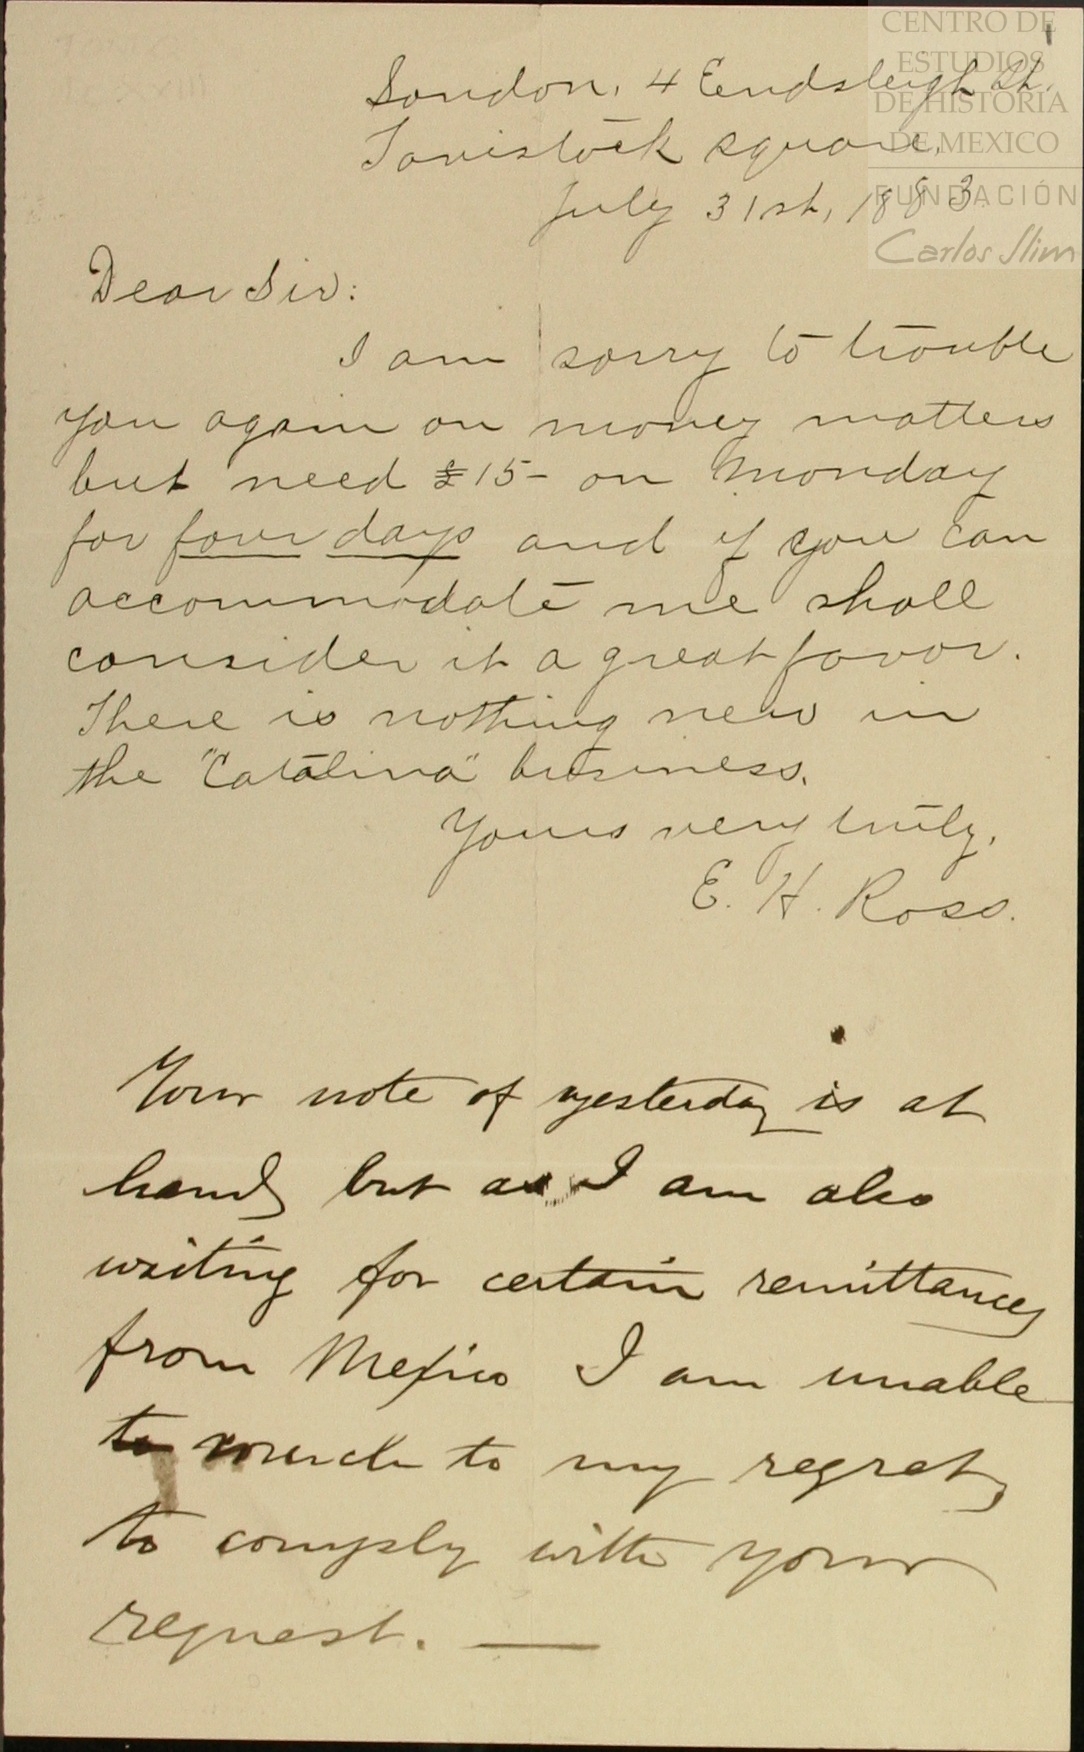 CENTRO DE
ESTUDIOS
DE HISTORIA
DE MEXICO
FUNDACIÓN
Carlos Slim
London, 4 Endsleigh St.
Tavistock square,
July 31st, 1883.
Dear Sir:
I am sorry to trouble
you again on money matters
but need £15- on Monday
for four days and if you can
accommodate me shall
consider it a great favor.
There is nothing new in
the "Catalina" business.
Yours very truly,
E. H. Ross.
Your note of yesterday is at
hand, but as I am also
waiting for certain remittances
from Mexico I am unable
to much to my regret,
to comply with your
request. —